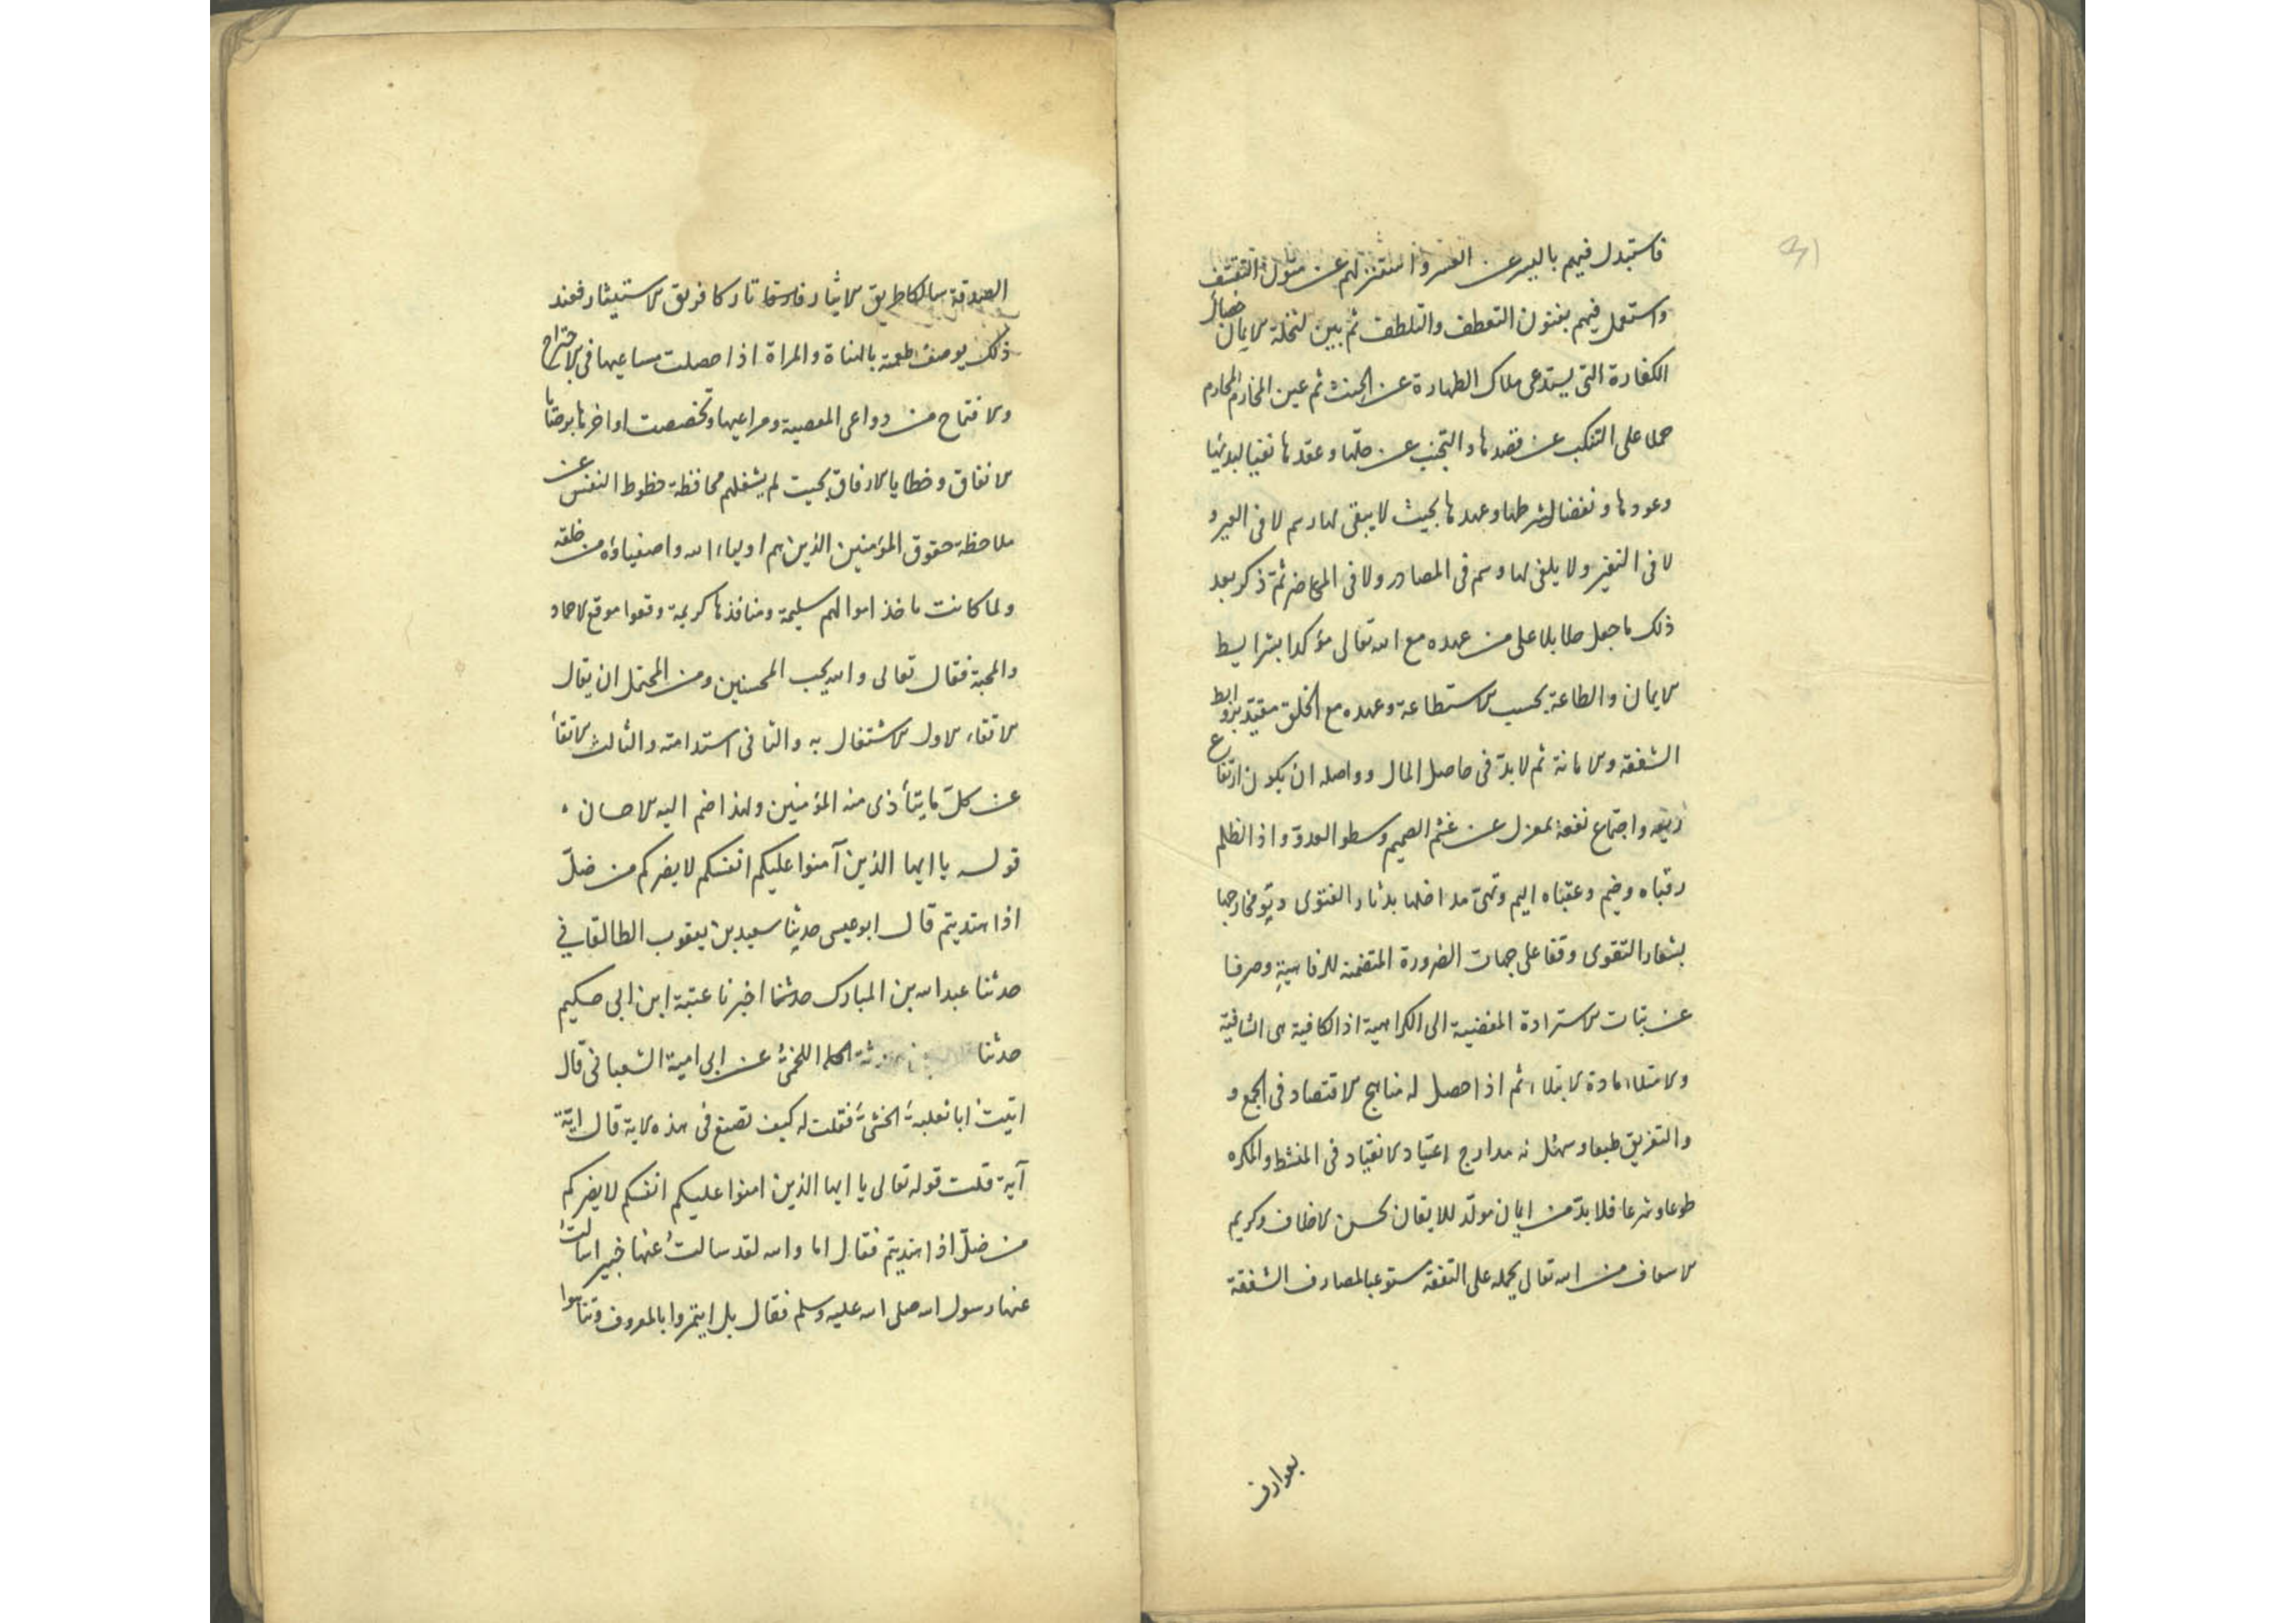 فاستبدل فيهم باليسر عن العسر واستنزلهم عن منزل التقشف
واستعمل فيهم بفنون التعطف والتلطف ثم بين لتخلة الايمان خصال
الكفارة التى يستدعى ملاك الطهارة عن الحنث ثم عين المخارم المحارم
حملا على التنكب عن قصدها والتجنب عن حلها وعقدها نفيا لبدئها
وعودها ونقضا لشرطها وعهدها بحيث لا يبقى لها رسم لا فى العير و
لا فى النفير ولا يلفى لها وسم فى المصادر ولا فى المحاضر ثمّ ذكر بعد
ذلك ما جعل طايلا على من عهده مع الله تعالى مؤكدا بشرايط
الايمان والطاعة بحسب الاستطاعة وعهده مع الخلق مقيّد بروابط
الشفقة والامانة ثم لا بدّ فى حاصل المال وواصله ان يكون ارتفاع
ريعه واجتماع نفعه بمعزل عن غشم الصميم وسطو العدوّ واذ الظلم
رقباه وضم وعقباه اليم مداخلها بدثار الفتوى مخارجها
بشعار التقوى وقفا على جهات الضرورة المتضمنة للرفاهيةِ وصرفا
عن الاستزادة المفضية الى الكراهية اذ الكافية هى الشافية
والامتلاء مادة الابتلاء ثم اذا حصل له مناهج الاقتصاد فى الجمع و
والتفريق طبعا وسهّل له مدارج اعتياد الانقياد فى المنشط والمكره
طوعا وشرعا فلا بدّ من ايمان مولّد للايقان بحسن الالطاف وكريم
الاسعاف من الله تعالى يحمله على النفقة مستوعبا لمصارف الشفقة
بعوارف
الصدقة سالكا طريق الايثار تاركا فريق الاستيثار فعند
ذلك يوصف طعمة بالهناة والمراة اذا حصلت مساعيها فى الاجتراح
والافتتاح من دواعى المعصية ومراعيها وتخصصت اواخرها بوصايا
الانفاق وخطايا الارفاق بحيث لم يشغلهم محافظة حظوظ النفس عن
ملاحظة حقوق المؤمنين الذين هم اولياء الله واصفياؤه من خلقه
ولما كانت ماخذ اموالهم سليمة ومنافذها كريمة وقعوا موقع الاحماد
والمحبة فقال تعالى والله يحب المحسنين ومن المحتمل ان يقال
الاتقاء الاول الاشتغال به والثانى استدامته والثالث الاتقاء
عن كلّ ما يتأذى منه المؤمنين ولهذا ضم اليه الاحسان
قوله يا ايها الذين آمنوا عليكم انفسكم لا يضركم من ضلّ
اذا اهتديتم قال ابو عيسى حدثنا سعيد بن يعقوب الطالقاني
حدثنا عبد الله بن المبارك حدثنا اخبرنا عتبة ابن ابى حكيم
حدثنا اللخمىّ عن ابى امية الشعبانى قال
اتيت ابا ثعلبة الخشنىّ فقلت له كيف تصنع فى هذه الاية قال ايّة
آية قلت قوله تعالى يا ايها الذين امنوا عليكم انفسكم لا يضركم
من ضلّ اذا اهتديتم فقال اما والله لقد سالتُ عنها خبيرا سالت
عنها رسول الله صلى الله عليه وسلم فقال بل ايتمروا بالمعروف وتناهوا